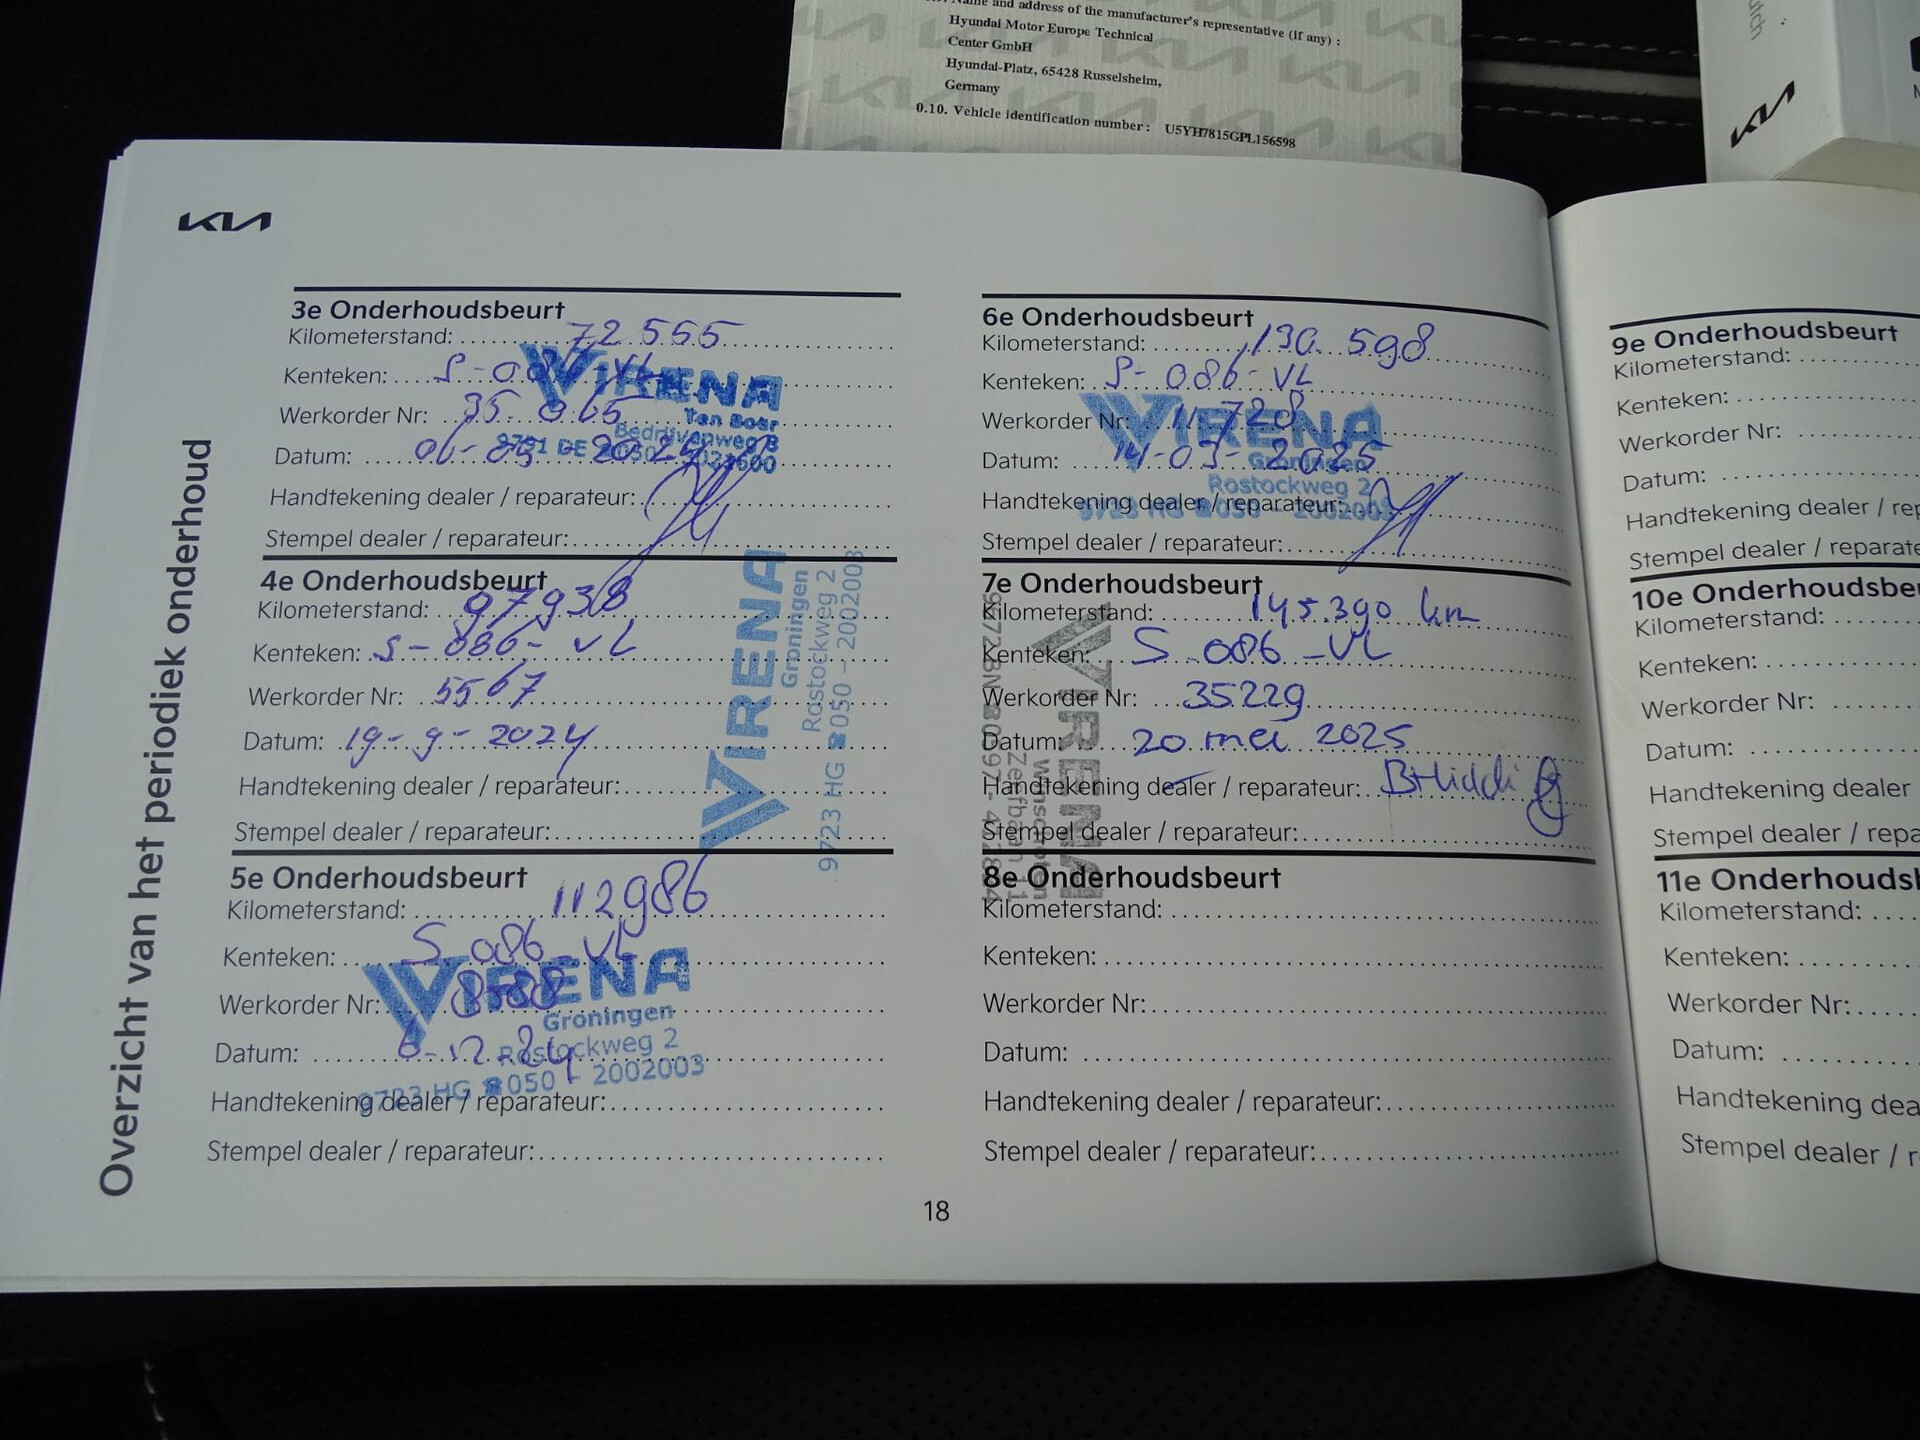 Name and address of the manufacturer's representative (if any) :
Hyundai Motor Europe Technical
Center GmbH
Hyundai-Platz, 65428 Russelsheim,
Germany
0.10. Vehicle identification number : U5YH7815GPL156598
KIA
KIA
Overzicht van het periodiek onderhoud
3e Onderhoudsbeurt
Kilometerstand: 72 555
Kenteken: S-086-VL
Werkorder Nr: 35 065
Datum: 06-
Handtekening dealer / reparateur:
Stempel dealer / reparateur:
VIRENA
Ten Boer
Bedrijvenweg 8
4e Onderhoudsbeurt
Kilometerstand: 97938
Kenteken: S-086-VL
Werkorder Nr: 5567
Datum: 19-9-2024
Handtekening dealer / reparateur:
Stempel dealer / reparateur:
VIRENA
Groningen
Rostockweg 2
9723 HG ☎ 050 - 2002003
5e Onderhoudsbeurt
Kilometerstand: 112986
Kenteken: S 086 VL
Werkorder Nr:
Datum: 6-12-24
Handtekening dealer / reparateur:
Stempel dealer / reparateur:
VIRENA
Groningen
Rostockweg 2
9723 HG ☎ 050 - 2002003
6e Onderhoudsbeurt
Kilometerstand: 130 598
Kenteken: S-086-VL
Werkorder Nr: 11728
Datum: 14-03-2025
Handtekening dealer / reparateur:
Stempel dealer / reparateur:
VIRENA
Groningen
Rostockweg 2
9723 HG ☎ 050 - 2002003
7e Onderhoudsbeurt
Kilometerstand: 145.390 km
Kenteken: S 086-VL
Werkorder Nr: 35229
Datum: 20 mei 2025
Handtekening dealer / reparateur:
Stempel dealer / reparateur:
VIRENA
Winschoten
Zeefbaan 11
8e Onderhoudsbeurt
Kilometerstand:
Kenteken:
Werkorder Nr:
Datum:
Handtekening dealer / reparateur:
Stempel dealer / reparateur:
18
9e Onderhoudsbeurt
Kilometerstand:
Kenteken:
Werkorder Nr:
Datum:
Handtekening dealer / rep
Stempel dealer / reparate
10e Onderhoudsbe
Kilometerstand:
Kenteken:
Werkorder Nr:
Datum:
Handtekening dealer
Stempel dealer / repa
11e Onderhouds
Kilometerstand:
Kenteken:
Werkorder Nr:
Datum:
Handtekening dea
Stempel dealer / r